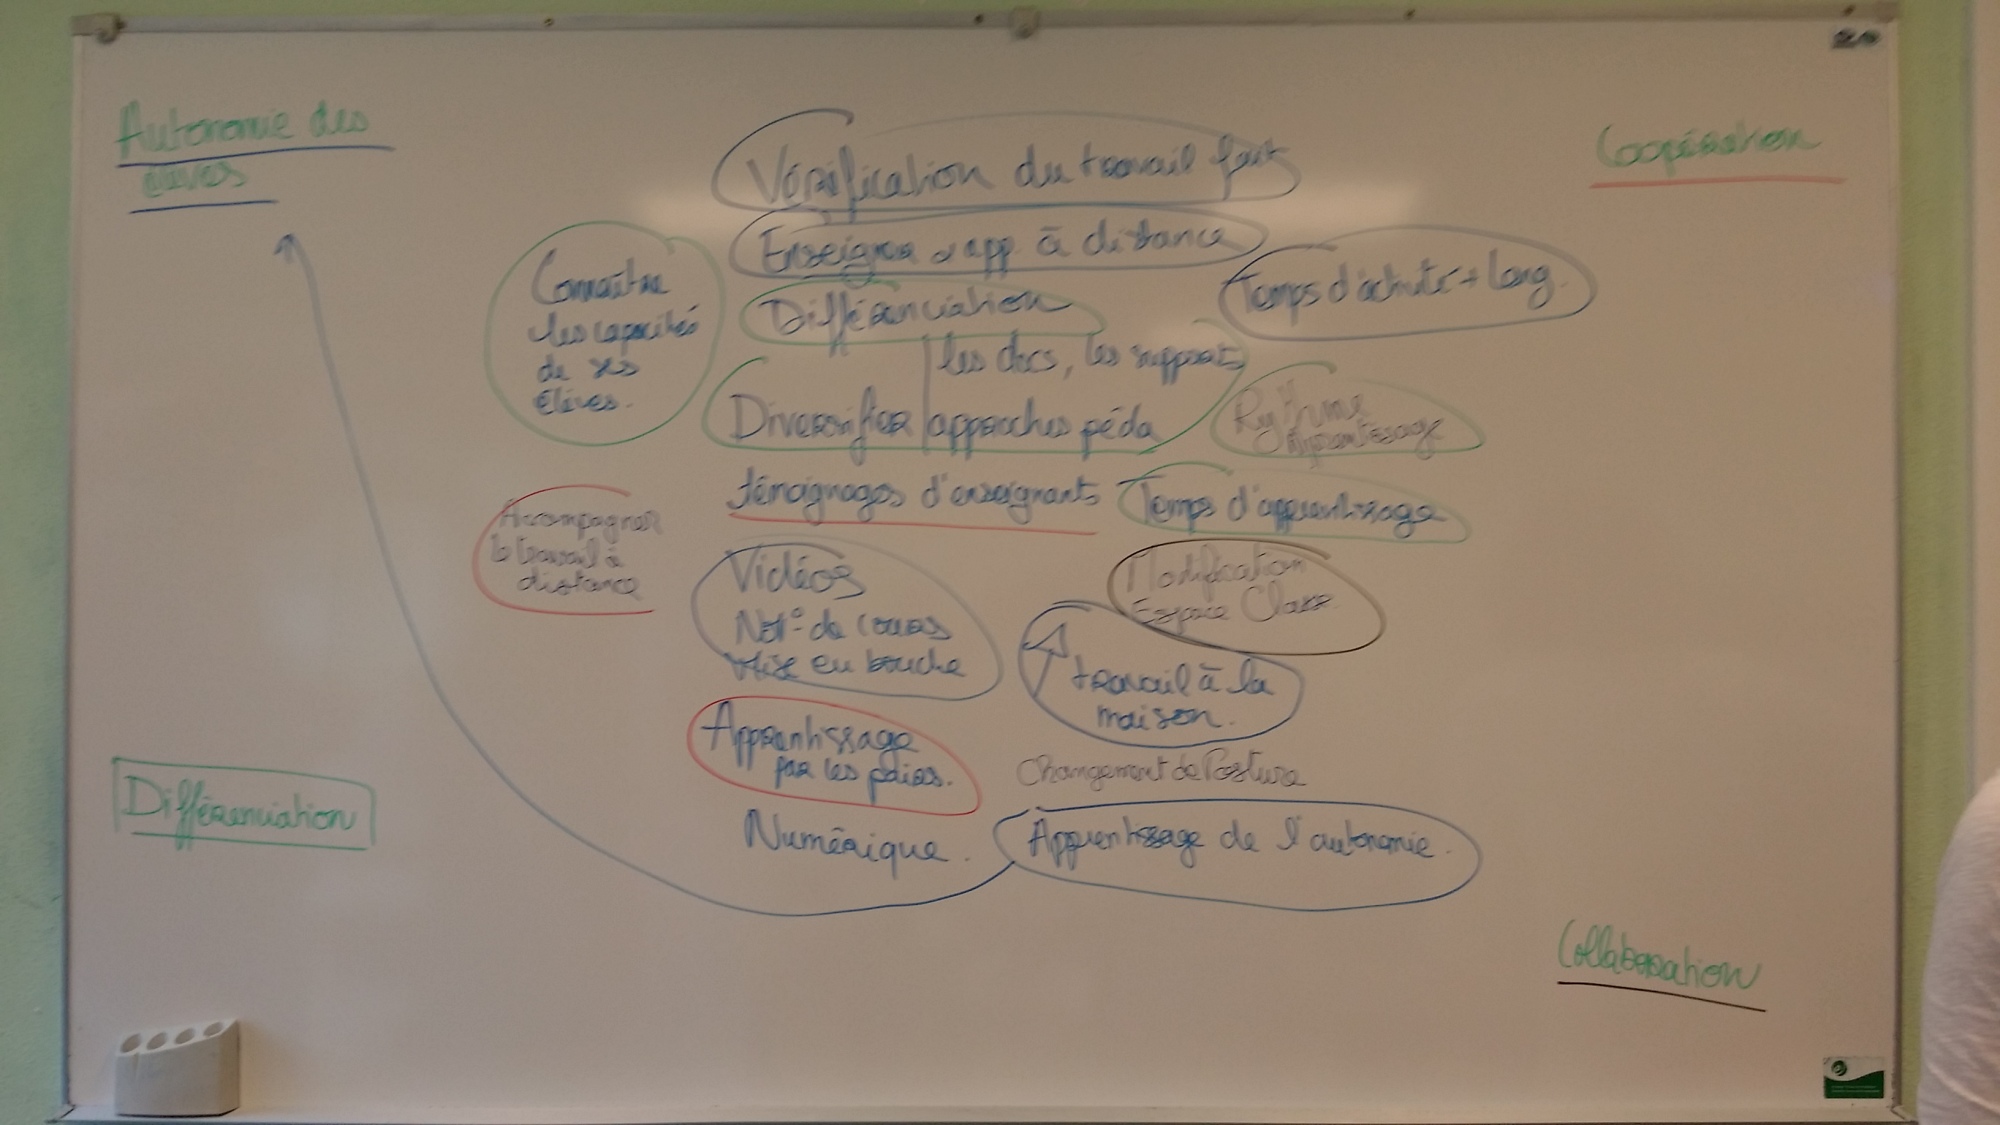 Autonomie des
élèves
Coopération
Vérification du travail fait
Enseigner app à distance
Temps d'activité + long.
Connaître
les capacités
de ses
élèves.
Différenciation
les docs, les supports
Diversifier approches péda
Rythme
Apprentissage
témoignages d'enseignants
Temps d'apprentissage
Accompagner
le travail à
distance
Vidéos
Not° de cours
Mise en bouche
Modification
Espace Classe
travail à la
maison.
Apprentissage
par les paires.
Changement de Posture
Différenciation
Numérique.
Apprentissage de l'autonomie.
Collaboration